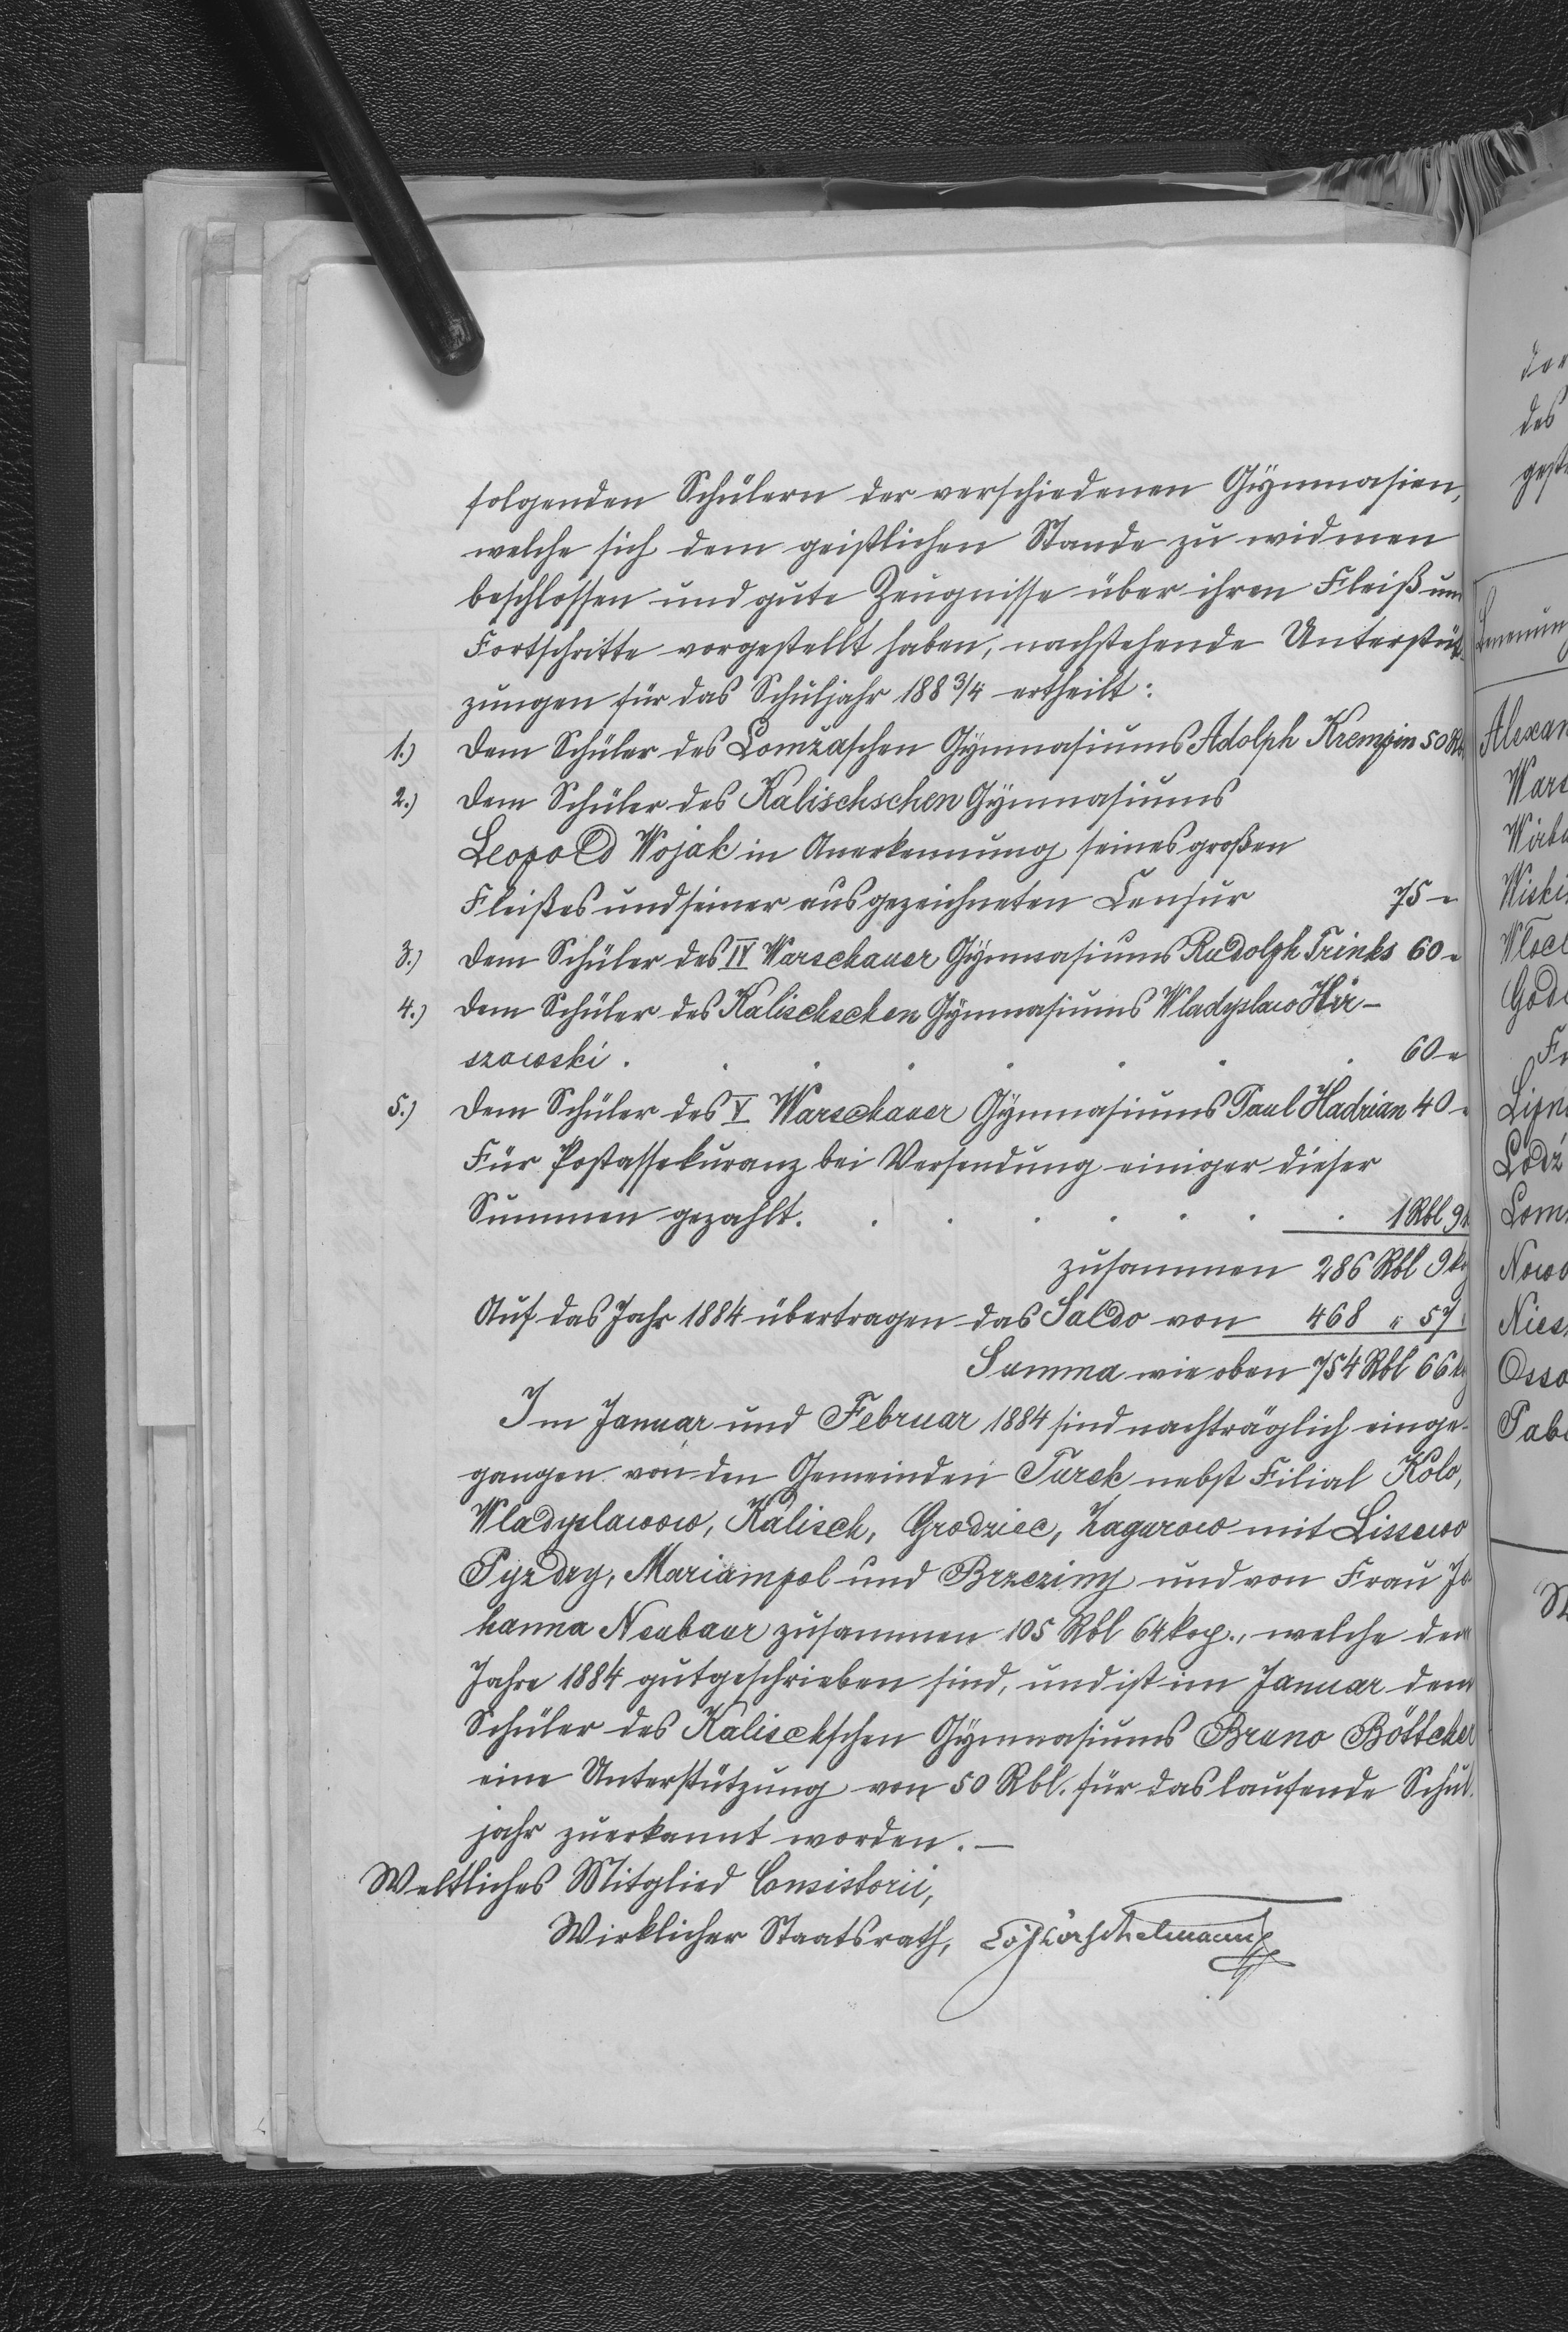 folgenden Schülern der verschiedenen Gymnasien,
welche sich dem geistlichen Stande zu widmen
beschlossen und gute Zeugnisse über ihren Fleiß und
Fortschritte vorgestellt haben, nachstehende Unterstüt-
zungen für das Schuljahr 188 3/4 ertheilt:
1.) dem Schüler des Lomżaschen Gymnasiums Adolph Krempin 50 Rbl
2.) dem Schüler des Kalischschen Gymnasiums
Leopold Wojak in Anerkennung seines großen
Fleißes und seiner ausgezeichneten Censur 75 "
3.) dem Schüler des IV Warschauer Gymnasiums Rudolph Trinks 60 "
4.) dem Schüler des Kalischschen Gymnasiums Wladyslaw Hir-
szowski . . . . . . 60 "
5.) dem Schüler des V Warschauer Gymnasiums Paul Hadrian 40 "
Für Postassekuranz bei Versendung einiger dieser
Summen gezahlt. . . . . . . . 1 Rbl 9 k
zusammen 286 Rbl 9 kop
Auf das Jahr 1884 übertragen das Saldo von 468 " 57
Summa wie oben 754 Rbl 66 k
Im Januar und Februar 1884 sind nachträglich einge-
gangen von den Gemeinden Turek nebst Filial Kolo,
Wladyslawow, Kalisch, Grodziec, Zagurow mit Lissewo
Pyzdry, Mariampol und Brzeziny und von Frau Jo-
hanna Neubaur zusammen 105 Rbl 64 kop., welche dem
Jahre 1884 gutgeschrieben sind, und ist im Januar dem
Schüler des Kalischschen Gymnasiums Bruno Böttcher
eine Unterstützung von 50 Rbl. für das laufende Schul-
jahr zuerkannt worden. —
Weltliches Mitglied Consistorii,
Wirklicher Staatsrath,
des
Alexan
Wars
Wirba
Wiski
Wlocl
Gode
Lipn
Lodz
Lom
Nowo
Nies
Osso
Pabi